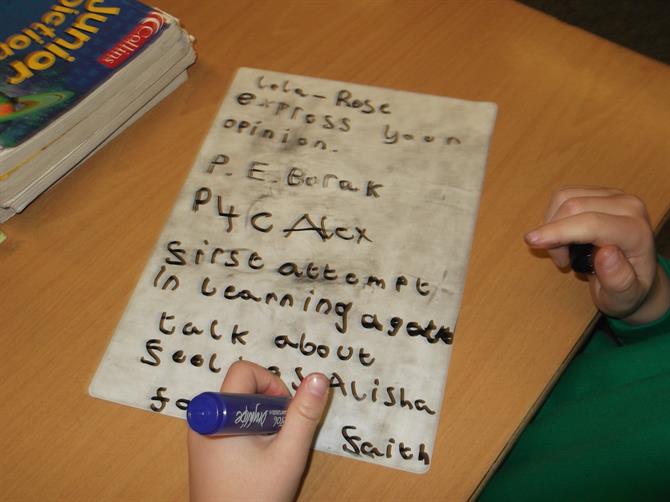 Collins
Junior
Lola-Rose
express your
opinion.
P.E. Borak
P4C Alex
first attempt
in learning agatk
talk about
feelings Alisha
Faith